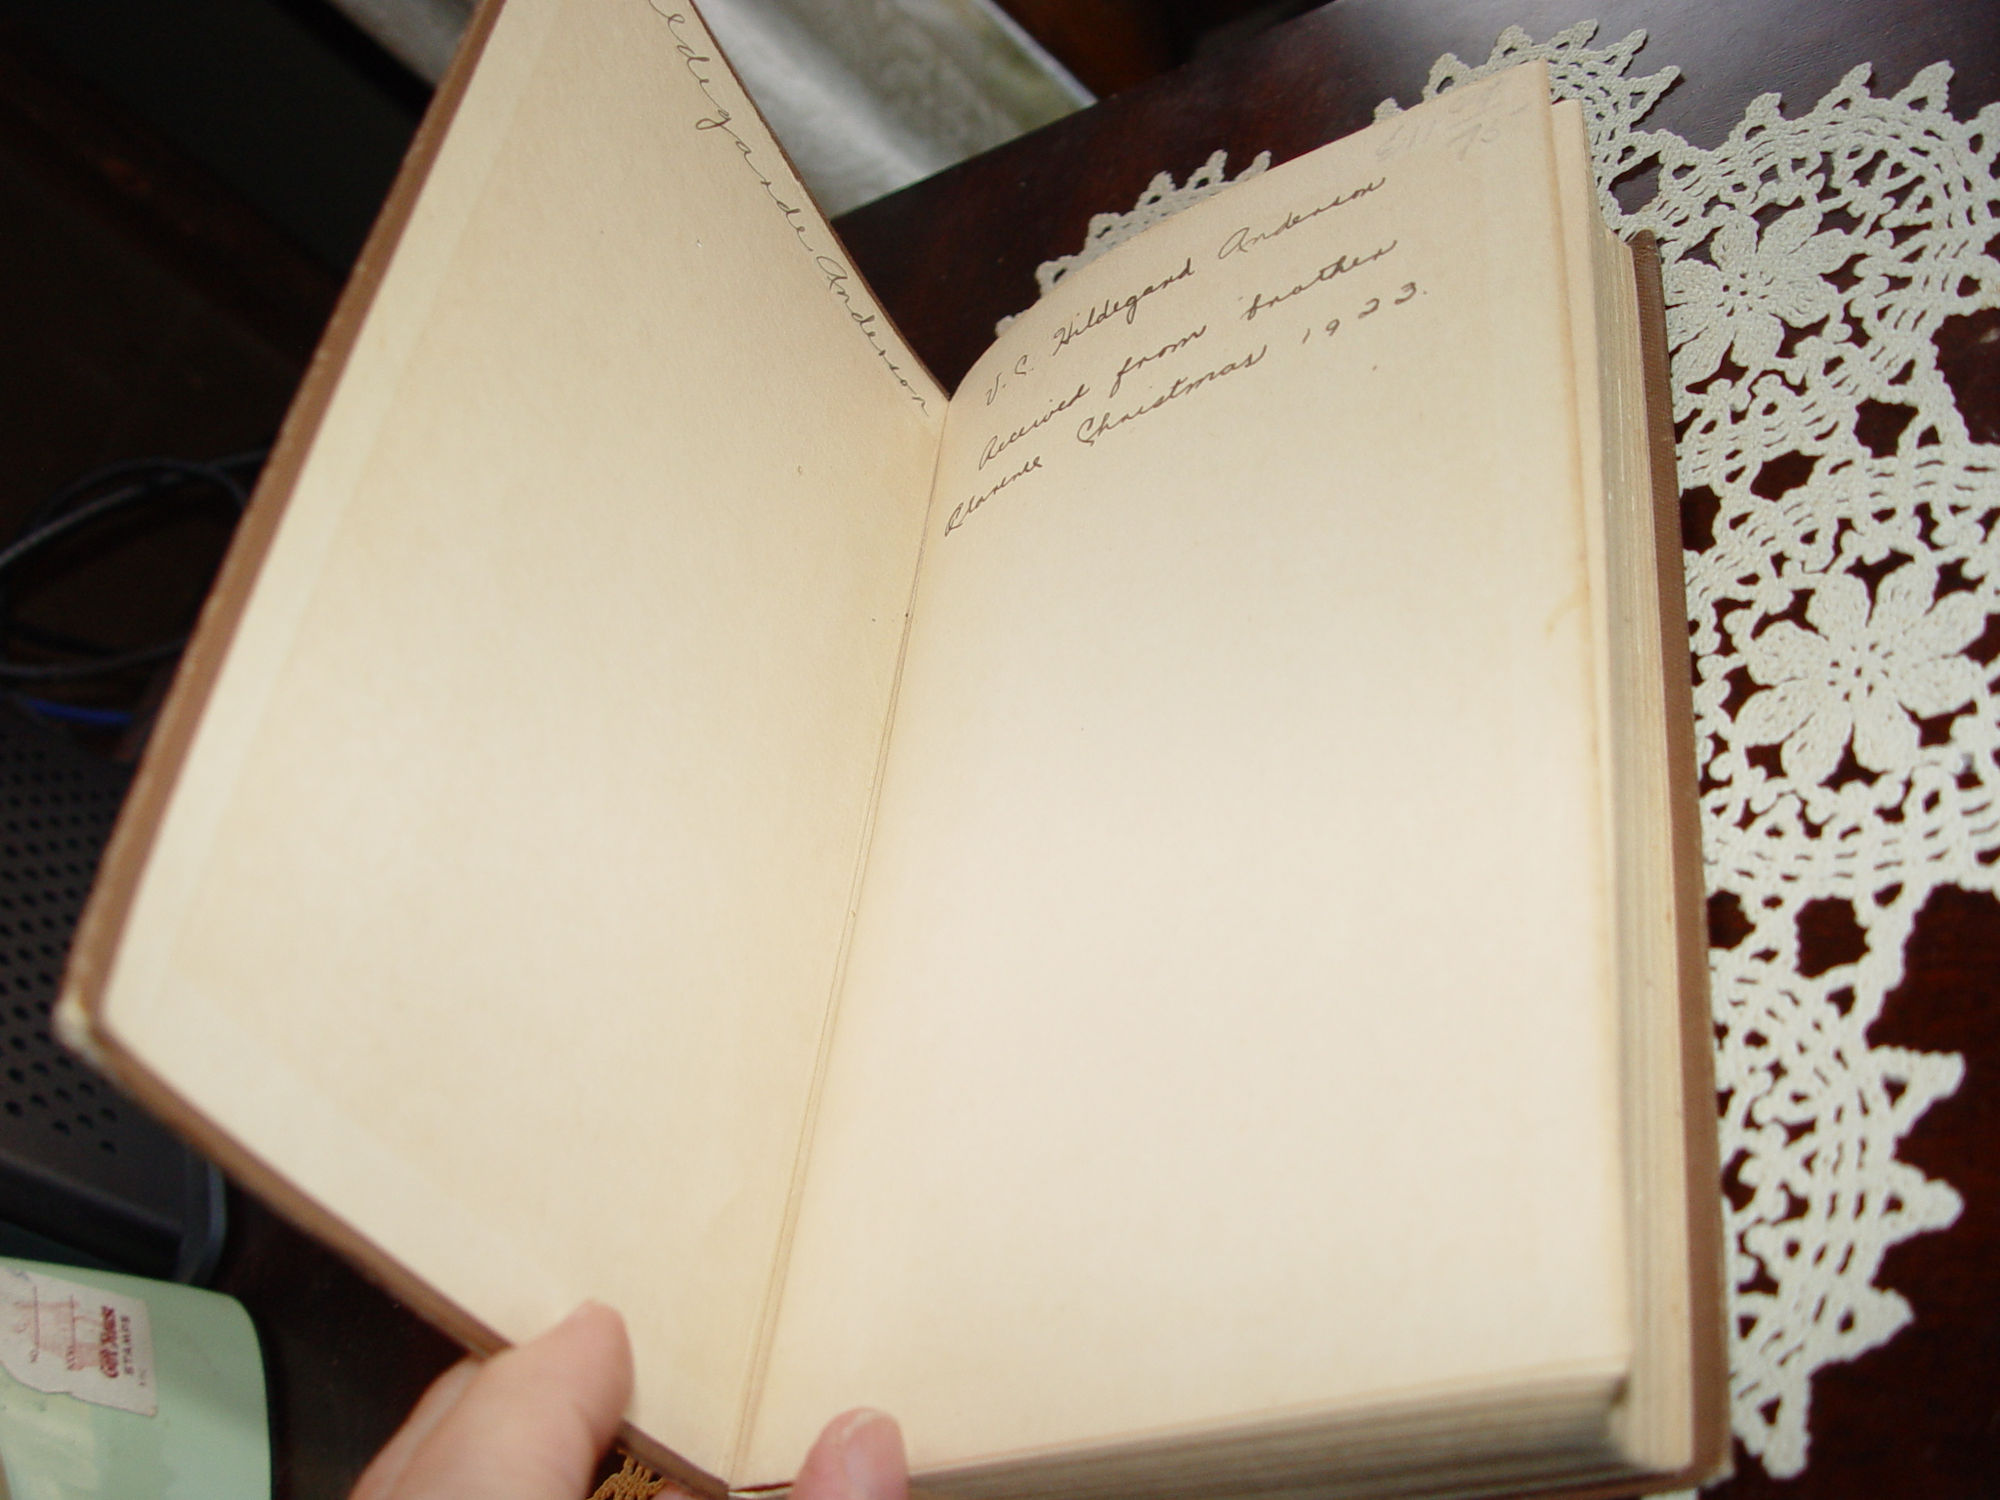 edegarde Anderson
V. C. Hildegard Anderson
Received from brother
Clarence Christmas 1923.
75
Gift House
STAMPS